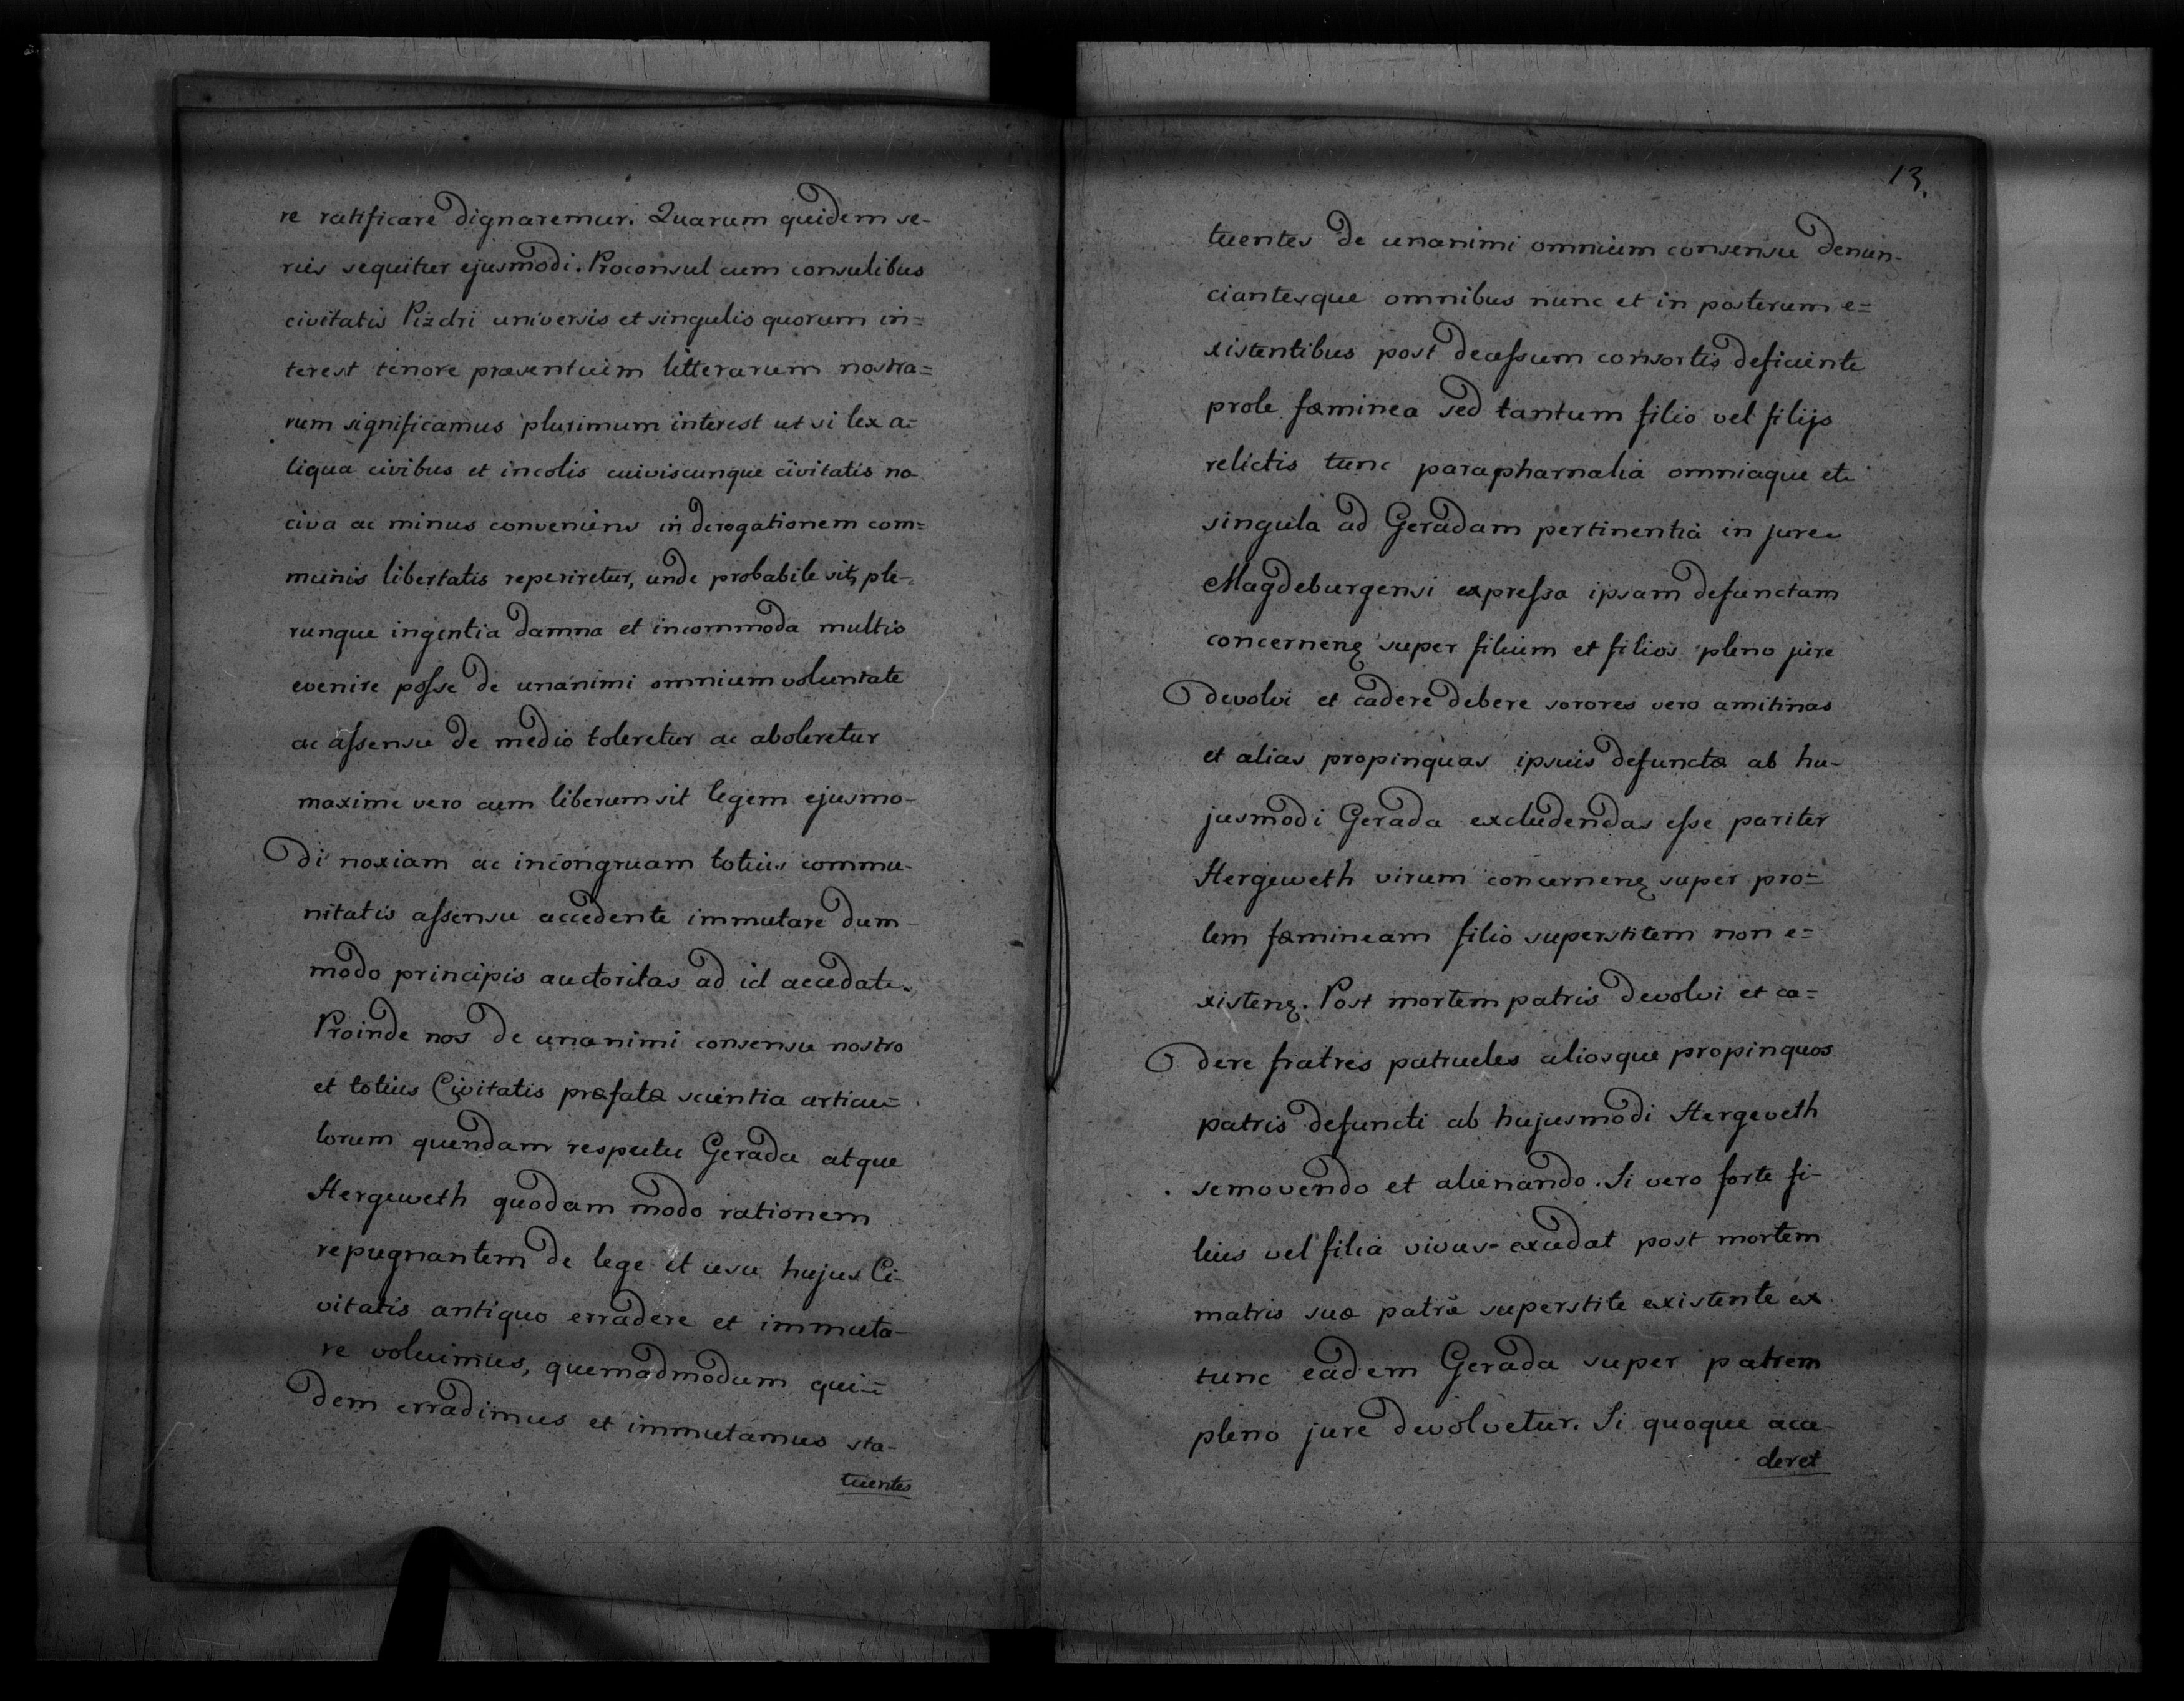 re ratificare dignaremur. Quarum quidem se-
ries sequitur ejusmodi. Proconsul cum consulibus
civitatis Pizdri universis et singulis quorum in=
terest tenore præsentium litterarum nostra=
rum significamus plurimum interest ut si lex a=
liqua civibus et incolis cuiviscunque civitatis no
civa ac minus conveniens in derogationem com=
munis libertatis reperiretur, unde probabile sit, ple-
runque ingentia damna et incommoda multis
evenire posse de unanimi omnium voluntate
ac assensu de medio toleretur ac aboleretur
maxime vero cum liberum sit legem ejusmo-
di noxiam ac incongruam totius commu-
nitatis assensu accedente immutare dum-
modo principis auctoritas ad id accedat.
Proinde nos de unanimi consensu nostro
et totius Civitatis præfatæ scientia articu=
lorum quendam respectu Gerada atque
Hergeweth quodam modo rationem
repugnantem de lege et usu hujus Ci-
vitatis antiquo erradere et immuta-
re voluimus, quemadmodum qui=
dem erradimus et immutamus sta-
tuentes
13.
tuentes de unanimi omnium consensu denun-
ciantesque omnibus nunc et in posterum e=
xistentibus post decessum consortis deficiente
prole fæminea sed tantum filio vel filijs
relictis tunc parapharnalia omniaque et
singula ad Geradam pertinentia in jure
Magdeburgensi expressa ipsam defunctam
concernenȩ super filium et filios pleno jure
devolvi et cadere debere sorores vero amitinas
et alias propinquas ipsius defunctæ ab hu-
jusmodi Gerada excludendas esse pariter
Hergeweth virum concernenȩ super pro=
lem fæmineam filio superstitem non e=
xistenȩ. Post mortem patris devolvi et ca=
dere fratres patrueles aliosque propinquos
patris defuncti ab hujusmodi Hergeveth
semovendo et alienando. Si vero forte fi-
lius vel filia vivus excedat post mortem
matris suæ patre superstite existente ex
tunc eadem Gerada super patrem
pleno jure devolvetur. Si quoque acce
deret